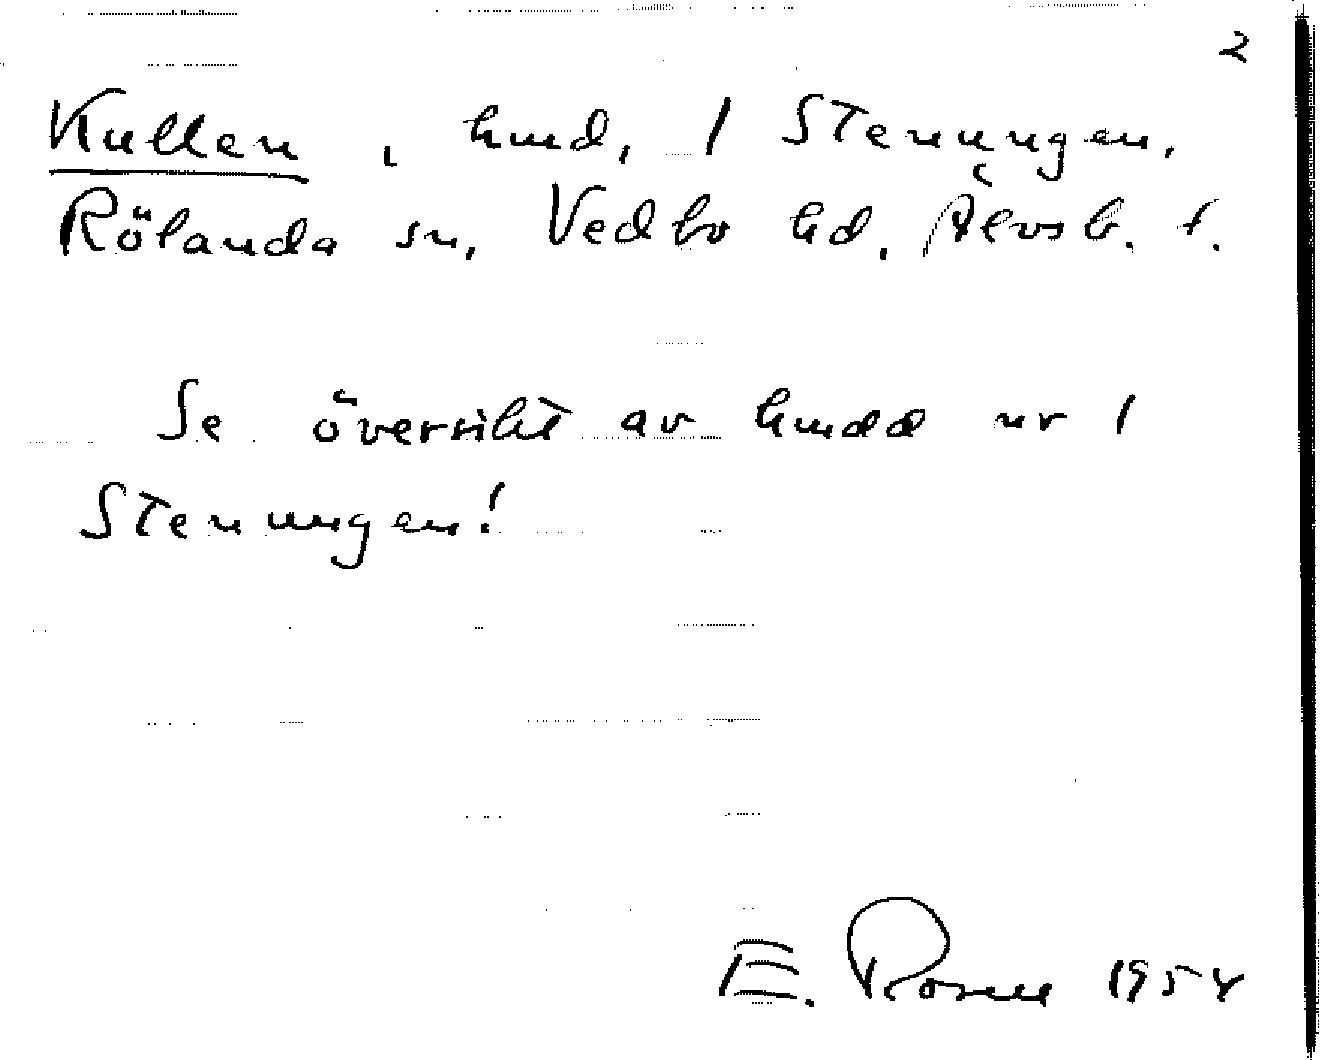 2
Kullen, hmd, 1 Stenungen,
Rölanda sn, Vedbo hd. Älvsb. l.
Se översikt av hmdd ur 1
Stenungen!
E. Rosell 1954